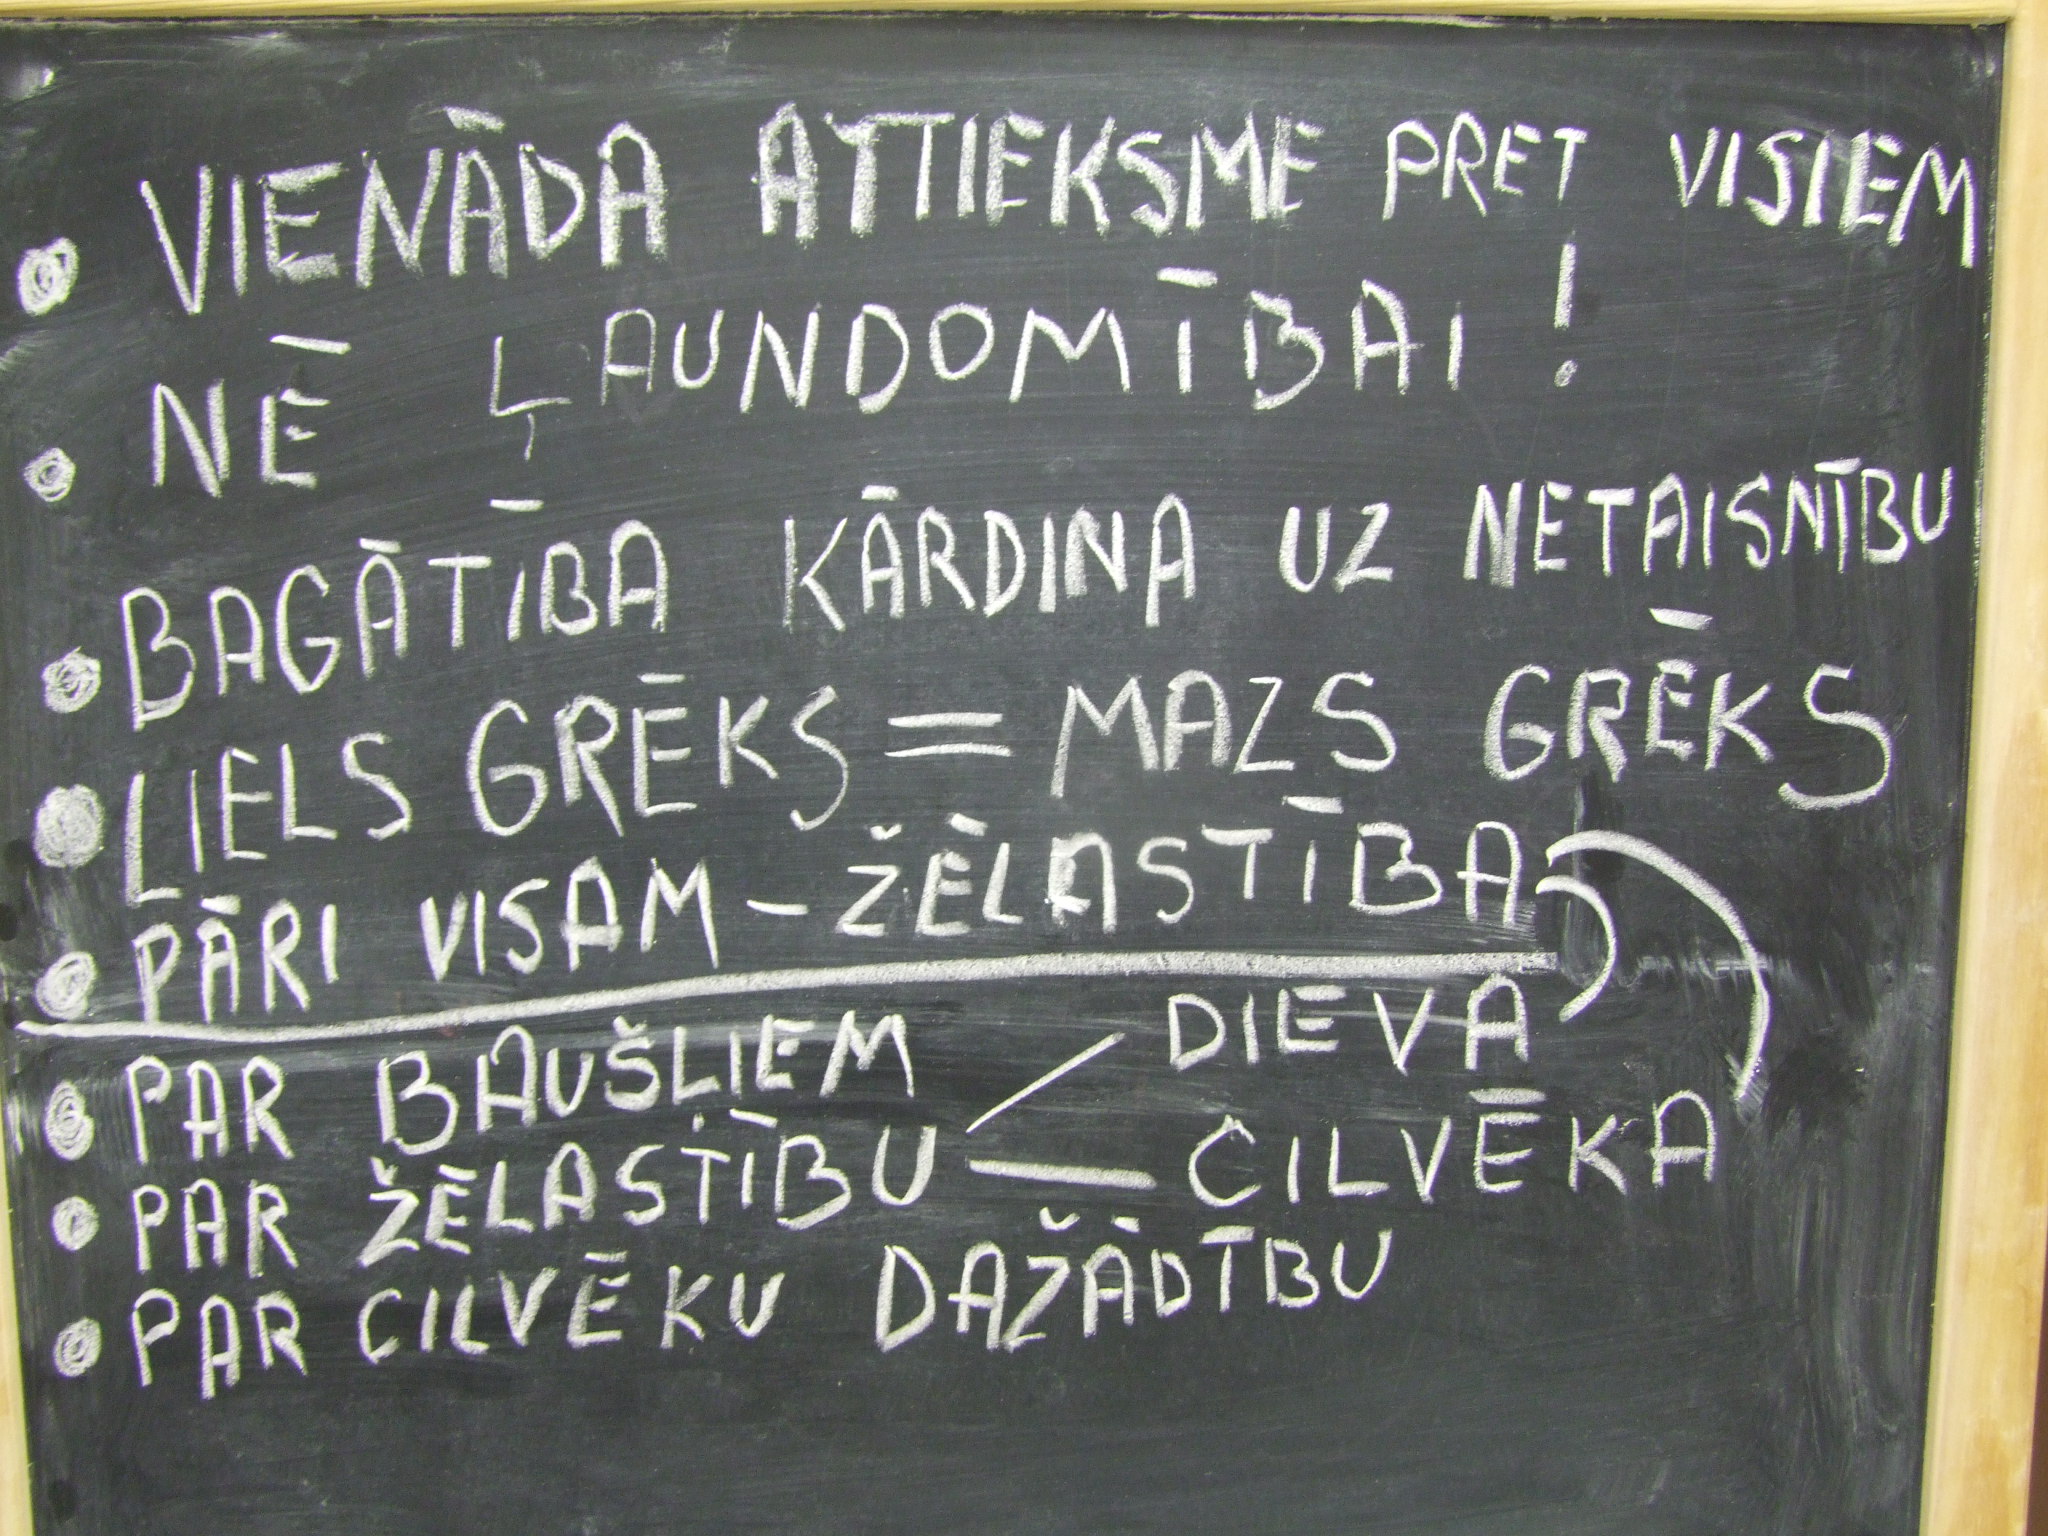 • VIENĀDA ATTIEKSME PRET VISIEM
• NĒ ĻAUNDOMĪBAI!
• BAGĀTĪBA KĀRDINA UZ NETAISNĪBU
• LIELS GRĒKS = MAZS GRĒKS
• PĀRI VISAM – ŽĒLASTĪBA
• PAR BAUŠĻIEM
DIEVA
• PAR ŽĒLASTĪBU
CILVĒKA
• PAR CILVĒKU DAŽĀDĪBU